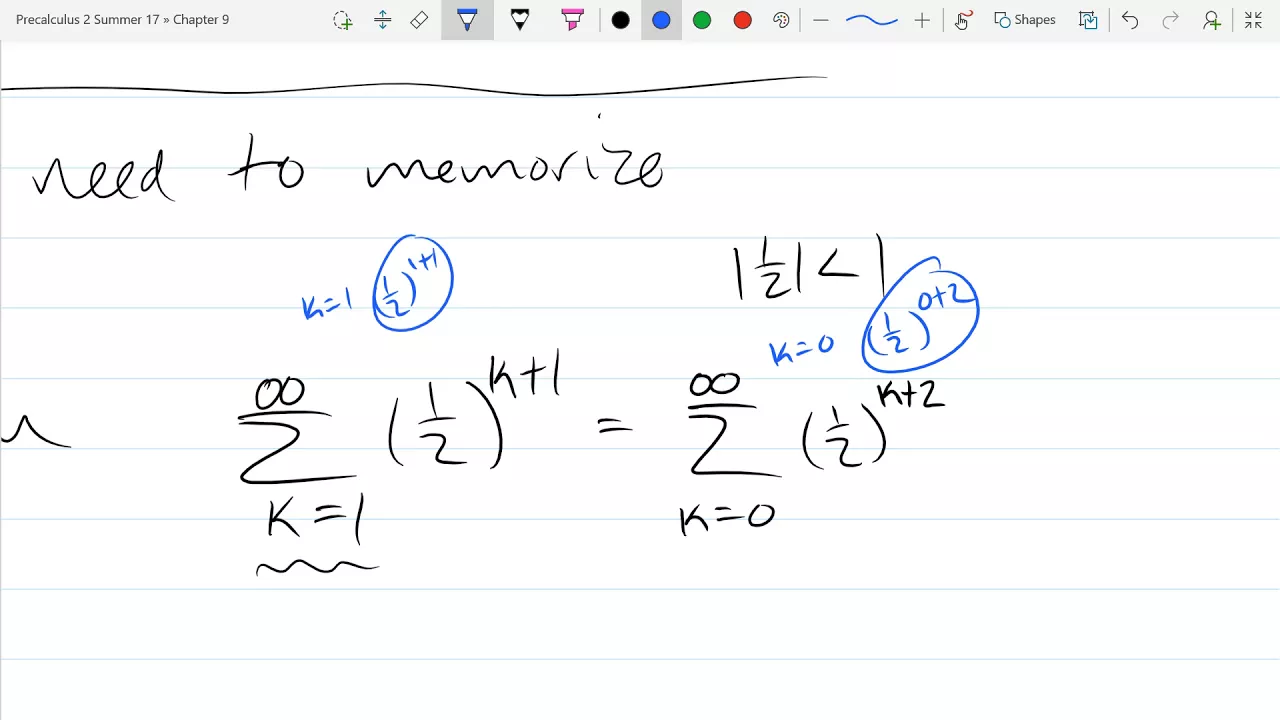 Precalculus 2 Summer 17 » Chapter 9
Shapes
need to memorize
|1/2| < 1
k=1 (1/2)^{1+1}
k=0 (1/2)^{0+2}
∞ ∑ k=1 (1/2)^{k+1} = ∞ ∑ k=0 (1/2)^{k+2}